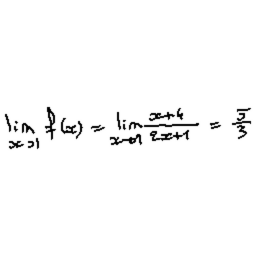 lim_{x→1} f(x) = lim_{x→1} \frac{x+4}{2x+1} = \frac{5}{3}